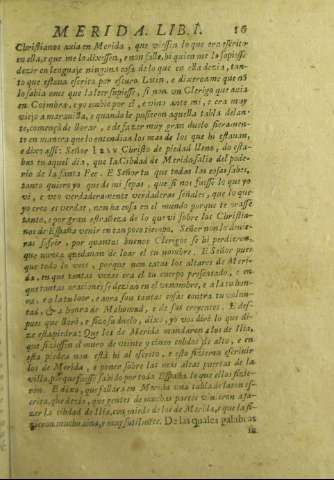 MERIDA. LIB. I. 16
Christianos auia en Merida, que viessen lo que era escrito
en ella, y que me lo dixessen, e non falle, bi quien me lo supiesse
dezir en lenguaje ninguna cosa de lo que en ella dezia, tan-
to que estaua escrita por escuro Latin, e dixeronme que no
lo sabia ome que la leer supiesse, si non un Clerigo que auia
en Coimbra, e yo embie por el, e vino ante mi, e era muy
viejo a marauilla, e quando le pusieron aquella tabla delan-
te, començo de llorar, e de fazer muy gran duelo fieramen-
te en manera que lo entendian los mas de los que hi estauan,
e dixo assi: Señor Christo de piedad lleno, do esta-
bas tu aquel dia, que la Cibdad de Merida salia del pode-
rio de la santa Fee. E Señor tu que todas las cosas sabes,
tanto quiero yo que de mi sepas, que si nos fuesse lo que yo
vi, e veo verdaderamente verdaderas señales, que lo que
yo creo es verdat, non ha cosa en el mundo porque te orasse
tanto, e por gran estrañeza de lo que vi sobre los Christia-
nos de España venir en tan poco tiempo. Señor non lo diuie-
ras sofrir, por quantos buenos Clerigos se bi perdieron,
que nunca quedauan de loar el tu nombre. E Señor pues
que todo lo vees, porque non catas los altares de Meri-
da, en que tantas vezes era el tu cuerpo presentado, e en
que tantas oraciones se dezian en el tu nombre, e a tu honra,
e a tu loor, e aora son tantas cosas contra tu volun-
tad, & a honra de Mahomad, e de sus creyentes. E des-
pues que lloró, e fizo su duelo, dixo, yo vos diré lo que di-
ze esta piedra: Que los de Merida mandaron a los de Ilia,
que fiziessen el muro de veinte y cinco cobdos de alto, e en
esta piedra non está hi al escrito, e esta fizieron escriuir
los de Merida, e poner sobre las mas altas puertas de la
villa, porque fuesse sabido por toda España lo que ellos fizie-
ron. E dixo, que fallara en Merida una tabla de laton es-
crita, que dezia, que gentes de muchas partes vinieran a fa-
zer la cibdad de Ilia, con miedo de los de Merida, e que la fi-
zieron mucho aina, e muy sutilmente. De las quales palabras
se